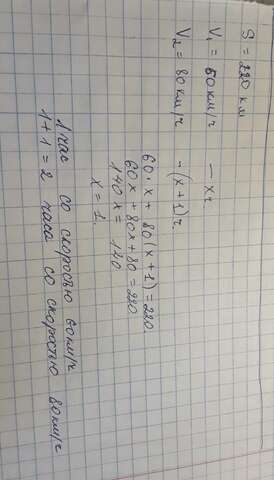 S = 220 км
V₁ = 60 км/ч — x ч
V₂ = 80 км/ч – (x+1) ч
60·x + 80(x+1) = 220.
60x + 80x + 80 = 220
140x = 140
x = 1.
1 час со скоростью 60 км/ч
1+1 = 2 часа со скоростью 80 км/ч